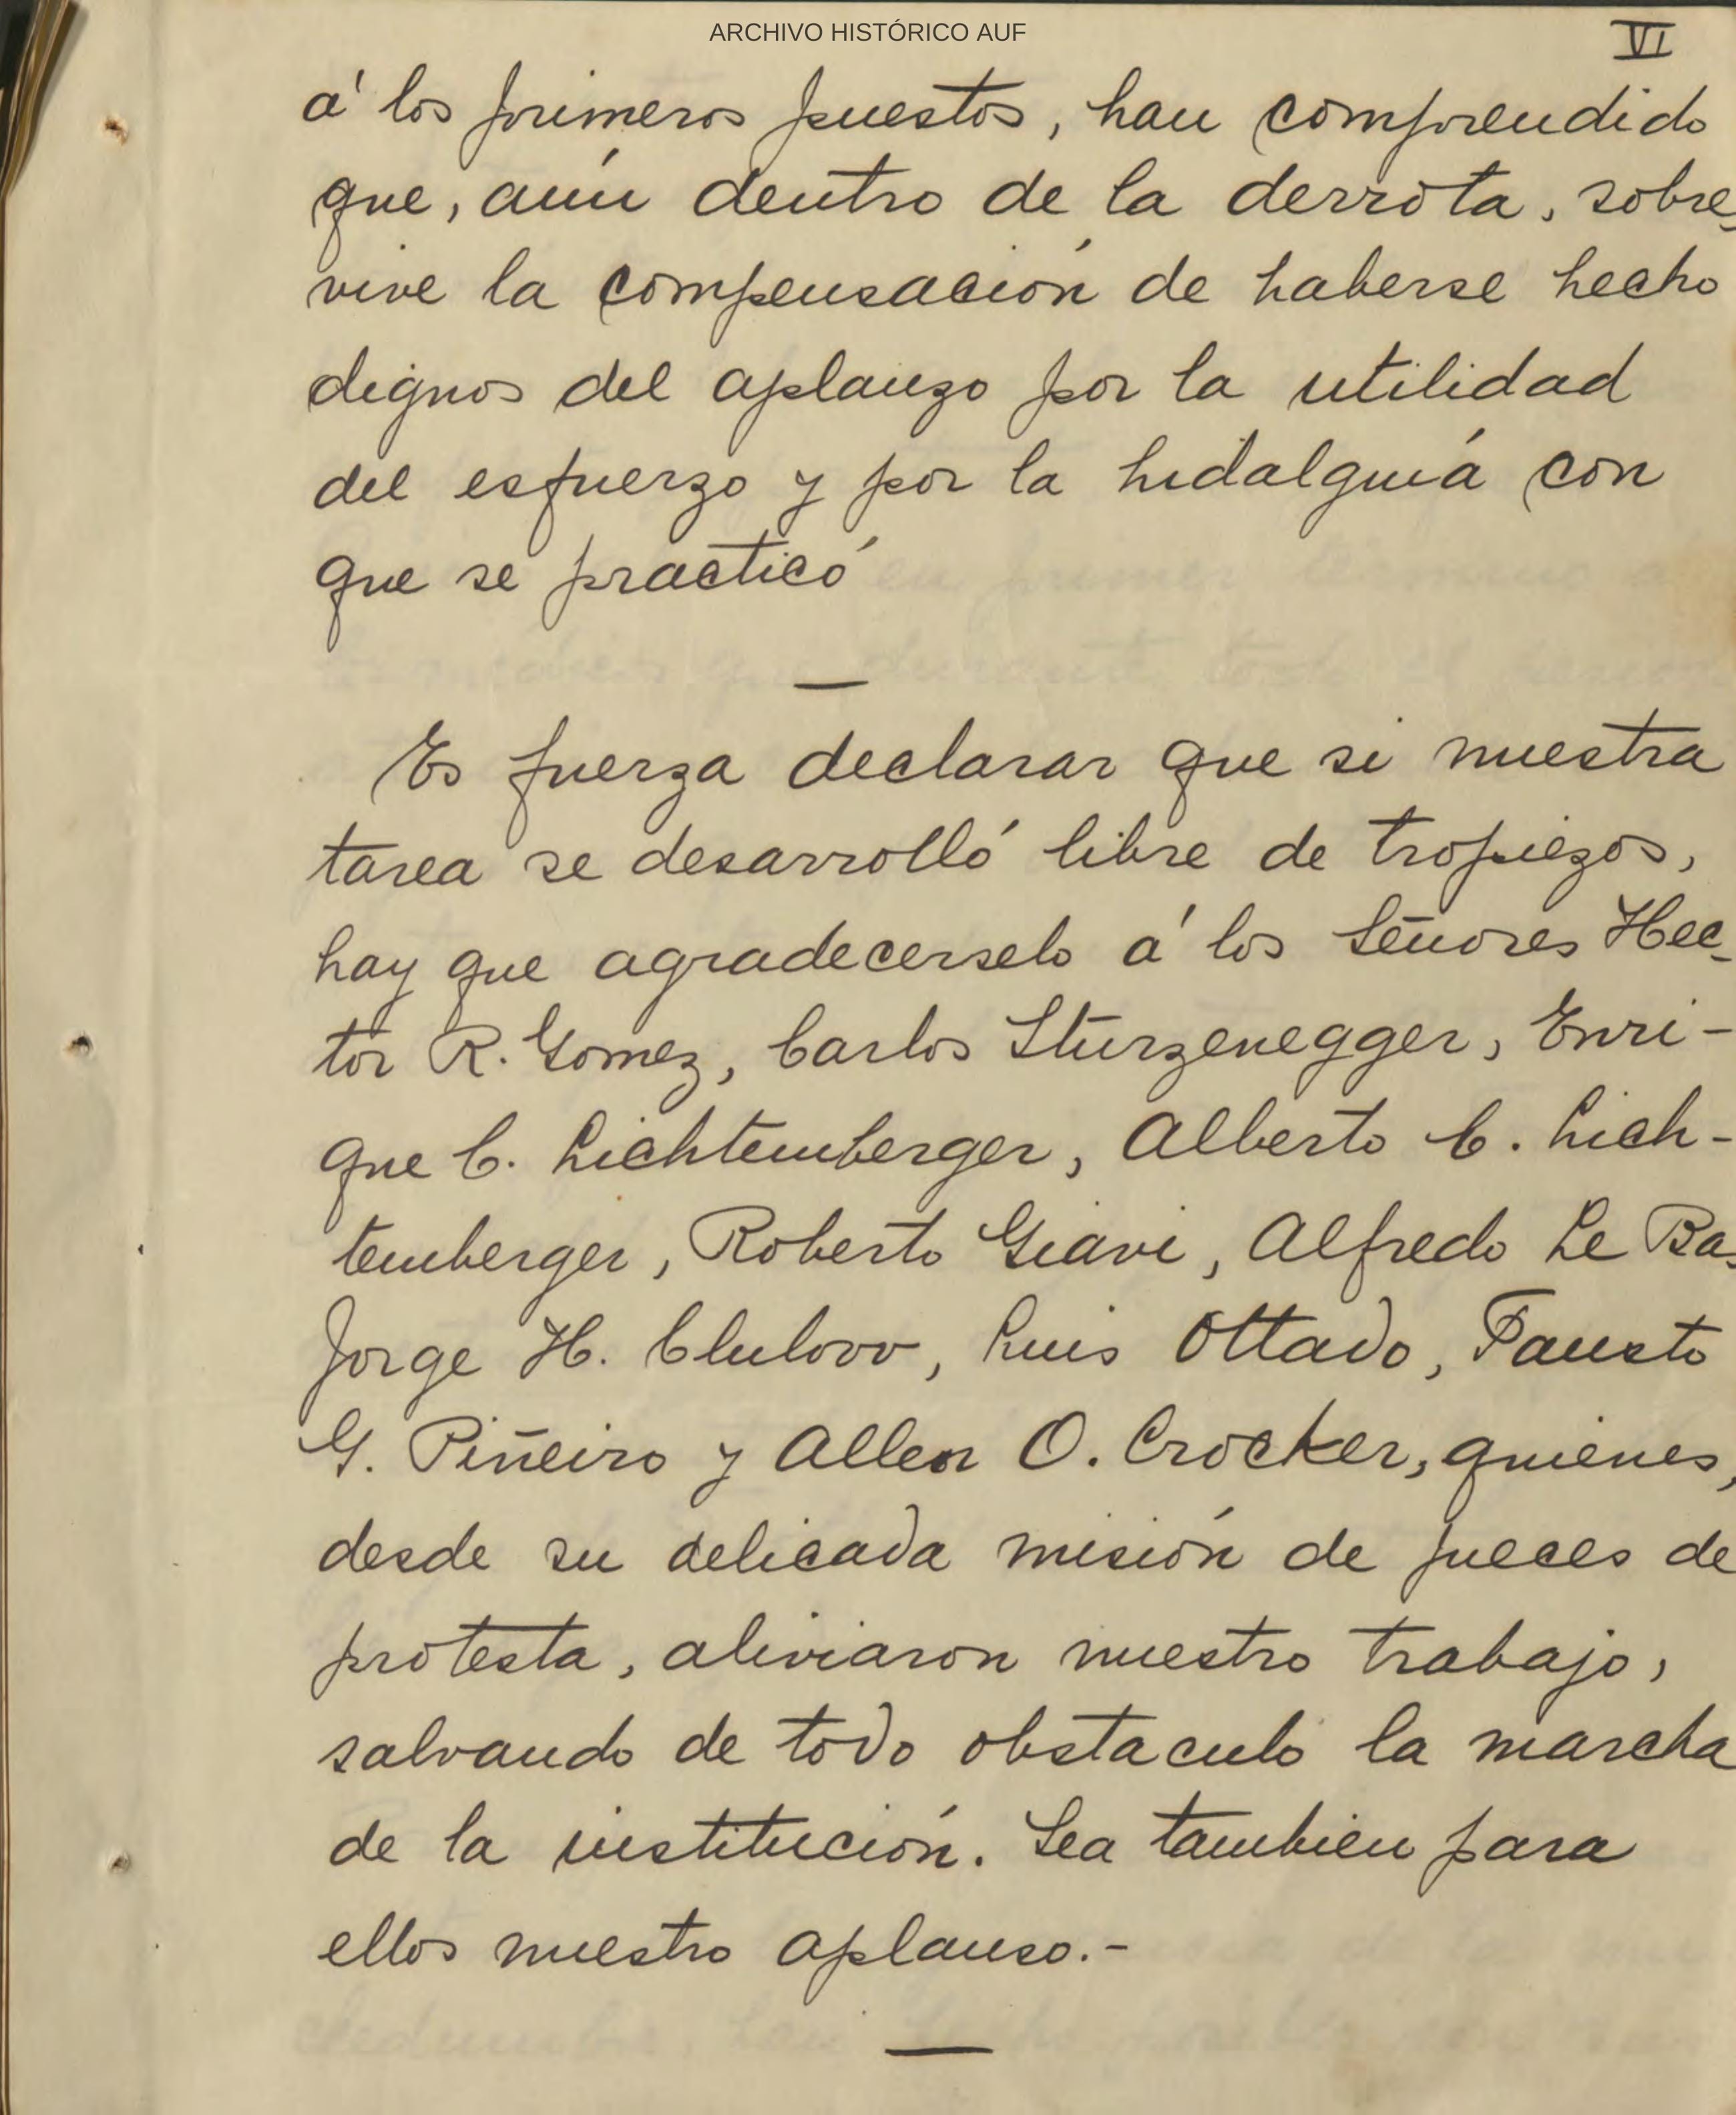 ARCHIVO HISTÓRICO AUF
VI
á los primeros puestos, han comprendido
que, aún dentro de la derrota, sobre-
vive la compensación de haberse hecho
dignos del aplauzo por la utilidad
del esfuerzo y por la hidalguía con
que se practicó
—
Es fuerza declarar que si nuestra
tarea se desarrolló libre de tropiezos,
hay que agradecerselo á los Señores Hec-
tor R. Gomez, Carlos Sturzenegger, Enri-
que C. Lichtemberger, Alberto C. Lich-
temberger, Roberto Giavi, Alfredo Le Bas,
Jorge H. Clulow, Luis Ottado, Fausto
G. Piñeiro y Allen O. Crocker, quienes,
desde su delicada misión de jueces de
protesta, aliviaron nuestro trabajo,
salvando de todo obstaculo la marcha
de la institución. Sea tambien para
ellos nuestro aplauso.-
—